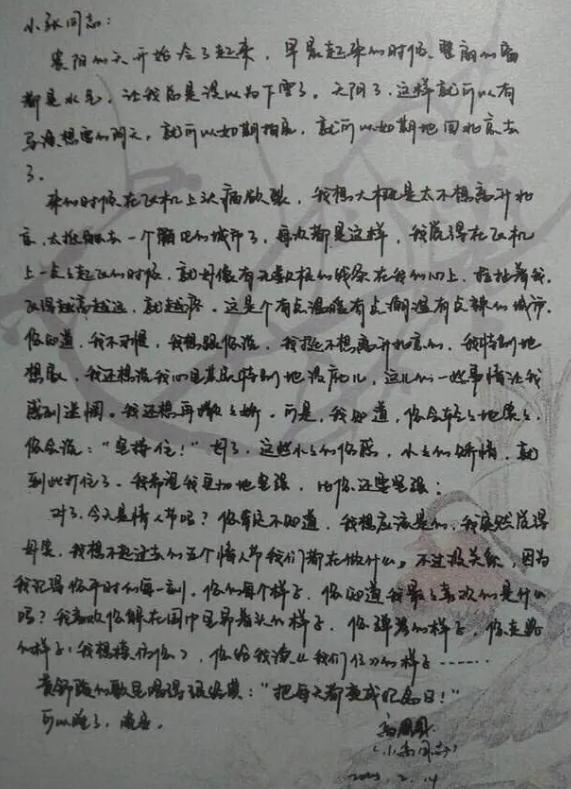 小张同志：
贵阳的天开始冷了起来，早晨起来的时候，里的窗
都是水气，让我总是误以为下雪了。天阴了，这样就可以有
的阴天，就可以如期拍戏，就可以如期地回北京去
了。
来的时候在飞机上头痛欲裂，我想大概是太不想离开北
京，太抵触去一个陌生的城市了，每次都是这样，我觉得在飞机
上一点点起飞的时候，就好像有无数根的线系在我的心上，拉扯着我，
飞得越高越远，就越疼。这是个有点温暖有点潮湿有点辣的城市，
你知道，我不习惯，我想跟你说，我挺不想离开北京的，我特别地
想家，我还想说我心里其实特别地没底儿，这儿的一些事情让我
感到迷惘。我还想再撒撒娇，可是，我知道，你会轻轻地笑笑，
你会说：“坚持住！”好了，这些小小的伤感，小小的矫情，就
到此打住了。我希望我更加地坚强，比你还要坚强！
对了，今天是情人节吗？你肯定不知道，我想应该是的，我突然觉得
好笑，我想不起过去的五个情人节我们都在做什么。不过没关系，因为
我记得你平时的每一刻，你的每个样子，你知道我最最喜欢的是什么
吗？我喜欢你躲在围巾里昂着头的样子，你弹琴的样子，你走路
的样子（我想模仿你），你给我读《我们仨》的样子……
黄舒骏的歌里唱得很经典：“把每天都变成纪念日！”
可以睡了，晚安。
高圆圆
（小高同志）
2.14